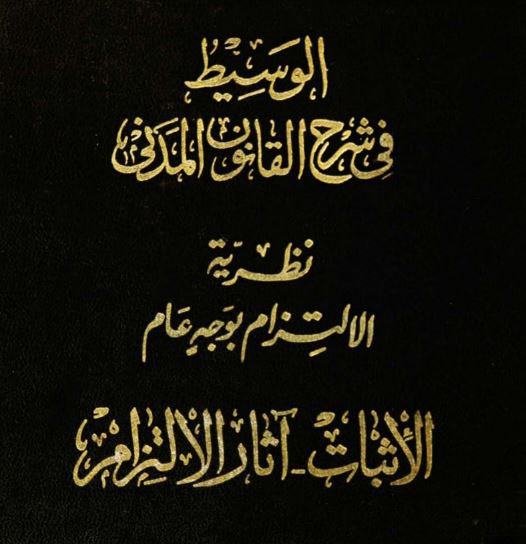 الوَسِيط
فِي شَرح القَانون المَدَنى
نظريّة
الالتِزام بوَجهٍ عَام
الإثبات - آثار الالتِزام